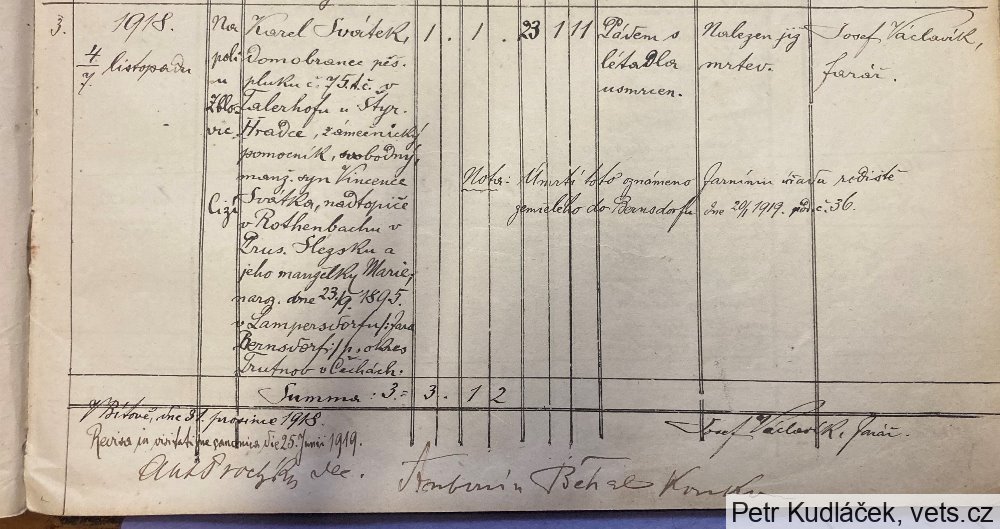 3.
1918.
4/7 listopadu
Na poli u Zblovic
Cizí
Karel Svátek,
domobranec pěš.
pluku č.
v
Talerhofu u Štyr.
Hradce, zámečnický
pomocník, svobodný,
manž. syn Vincence
Svátka, nadtopiče
v Rothenbachu v
Prus. Slezsku a
jeho manželky Marie,
naroz. dne 23/9. 1895.
v Lampersdorfu /: fara
Bernsdorf :/, okres
Trutnov v Čechách.
1 . 1 . 23 1 11
Pádem s
létadla
usmrcen.
Nalezen již
mrtev.
Josef Václavík,
farář.
Nota: Úmrtí toto oznámeno farnímu úřadu rodiště
zemřelého do Bernsdorfu dne 1919. pod. č. 36.
Summa : 3 = 3. 1 2
V Bítově, dne 31. prosince 1918.
Josef Václavík, farář.
Revisa in visitatione canonica die 25. Junii 1919.
Ant. Procházka, dec.
Antonín Běhal
Petr Kudláček, vets.cz